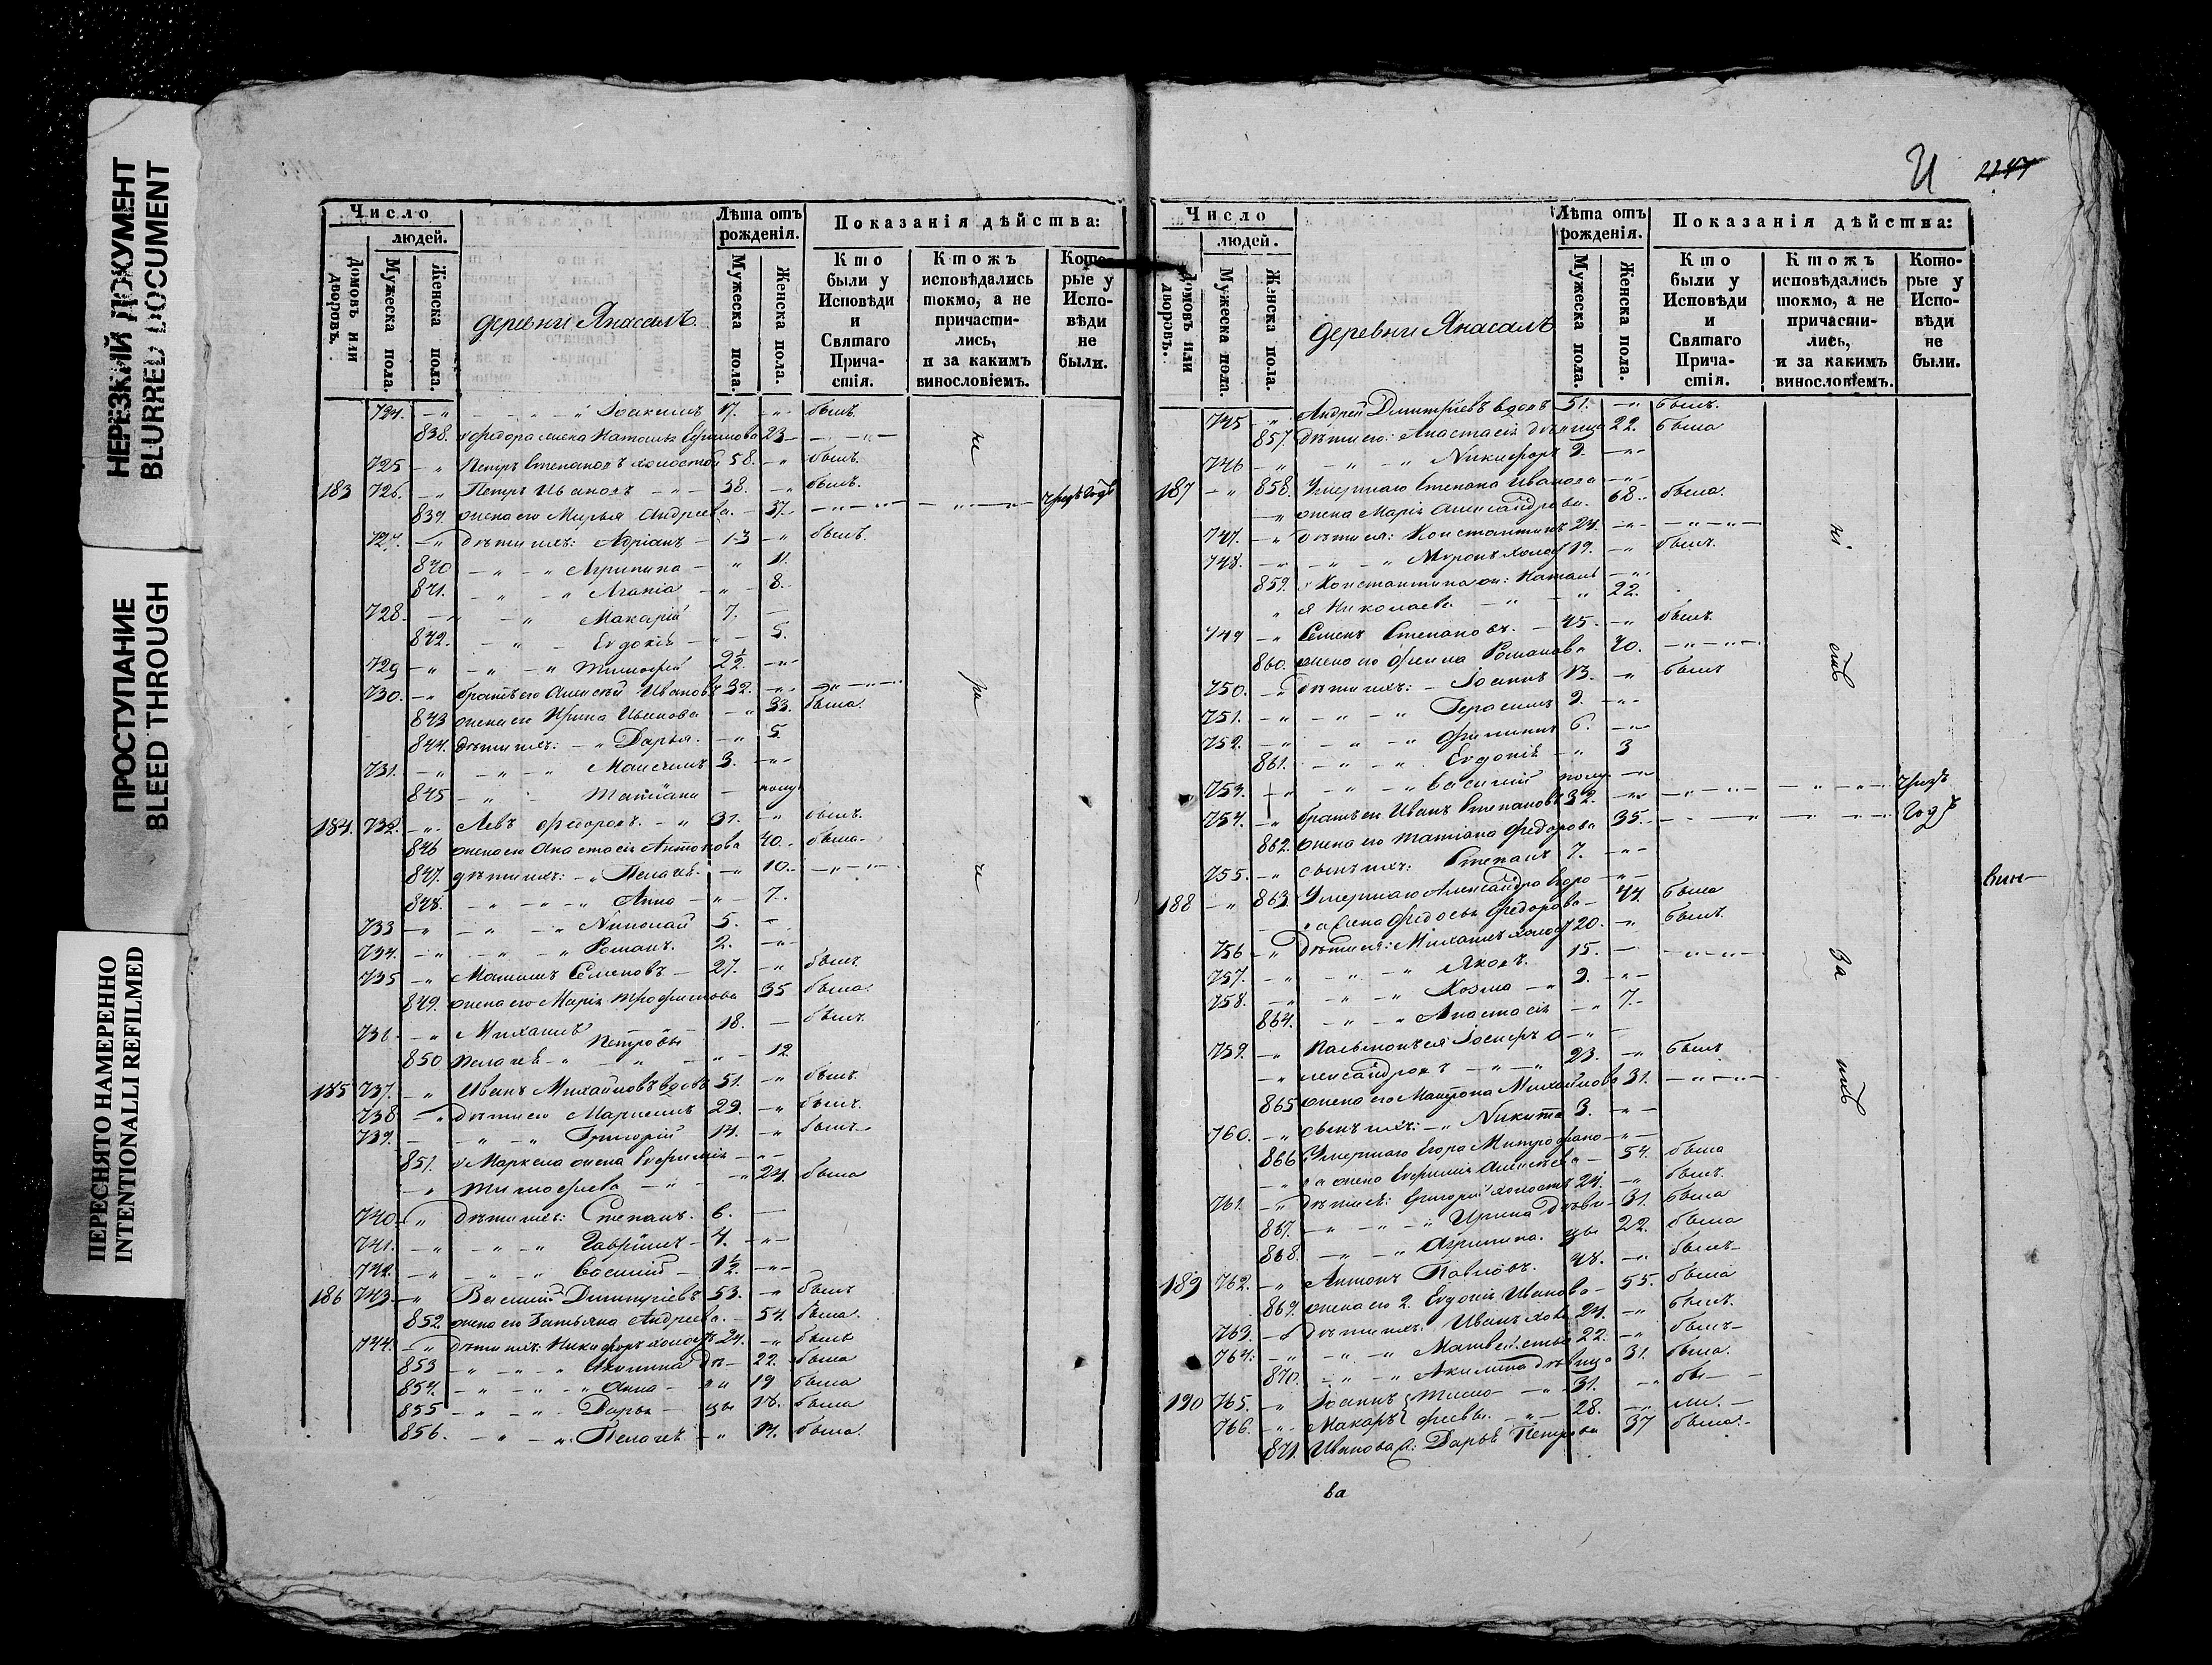 НЕРЕЗКИЙ ДОКУМЕНТ
BLURRED DOCUMENT
ПРОСТУПАНИЕ
BLEED THROUGH
ПЕРЕСНЯТО НАМЕРЕННО
INTENTIONALLI REFILMED
Число
людей.
Домовъ или дворовъ.
Мужеска пола.
Женска пола.
деревни Янасалъ
Лѣта отъ рожденія.
Мужеска пола.
Женска пола.
Показанія дѣйства:
Кто были у Исповѣди и Святаго Прича-стія.
Ктожъ исповѣдались токмо, а не причасти-лись, и за какимъ винословіемъ.
Кото-рые у Испо-вѣди не были.
724. Іоакимъ 17. былъ
838. Федора жена Наталья 23
725 Петръ Степановъ холостой 58. былъ.
183 726. Петръ Ивановъ 38. былъ.
839. жена его Марья Андреева. 37. чрезъ годъ
727. дѣти ихъ: Адріанъ 13 былъ.
840 Агрипина 11.
841. Агапіа 8.
728. Макарій 7.
842. Евдокія 5.
729 Тимофей 2½.
730. братъ его Алексѣй Ивановъ 32.
843 жена его Ирина Иванова 33. была.
844. дѣти ихъ: Дарья. 5.
731. Максимъ 3.
845 Татіана полу
184. 732. Левъ Федоровъ. 31. былъ.
846 жена его Анастасія Антонова 40. была.
847. дѣти ихъ: Пелагея. 10.
848. Анна 7.
733 Николай 5.
734. Романъ. 2.
735 Семеновъ 27. былъ
849. жена его Марія Трофимова 35 была.
736. Михаилъ Петровы 18. былъ.
850 Пелагея 12
185 737. Иванъ Михайловъ вдовъ 51. былъ.
738 дѣти его 29. былъ.
739. Григорій 14. былъ
851. жена Евфимія
Тимофеева 24. была
740. дѣти ихъ: Степанъ. 6.
741. Гавріилъ 4.
742. Василій 1½.
186 743. Василій Димитріевъ 53. былъ
852. жена его Татьяна Андреева. 54. была.
744. дѣти ихъ: Никифоръ холостъ 24. былъ
853 Акилина дѣ- 22. была
854. Анна 19 была
855 Дарья цы 18. была
856. Пелагея 14. была.
не ра че
Число
людей.
Домовъ или дворовъ.
Мужеска пола
Женска пола.
деревни Янасалъ
Лѣта отъ рожденія.
Мужеска пола.
Женска пола.
Показанія дѣйства:
Кто были у Исповѣди и Святаго Прича-стія.
Ктожъ исповѣдались токмо, а не причасти-лись, и за какимъ винословіемъ.
Кото-рые у Испо-вѣди не были.
745 Андрей Димитріевъ вдовъ 51. былъ.
857. дѣти его: Анастасія дѣвица 22. была
746 Никифоръ 9.
187 858. Умершаго Степана Иванова
жена Марія Александрова. 68. была.
747. дѣти ея: Константинъ 24.
748. Миронъ холост 19. былъ.
859. Константина ж: Натал
я Николаева 22.
749 Семенъ Степановъ. 45. былъ
860. жена его Романова 40.
750. дѣти ихъ: Іоаннъ 13. былъ
751. Герасимъ 9.
752. Филиппъ 6.
861. Евдокія 3
753. Василій полу
754. братъ его Иванъ Степановъ 32. чрезъ
862. жена его Татіана Федорова 35. годъ
755. сынъ ихъ: Степанъ 7.
188 863. Умершаго Александра Федоро
ва жена Федосья Федорова 44. была
756 дѣти ея: Михаилъ холост 20. былъ
757. Яковъ. 15.
758. Козма 9.
864. Анастасія 7.
759. Іосифъ А-
лександровъ 23. былъ
865 жена его Матрона Михайлова 31.
760. сынъ ихъ: Никита 3.
866 Умершаго Егора Митрофано-
ва жена Евфимія Алексѣева 54. была
761. дѣти ея: Григорій холостъ 24. былъ.
867. Ирина дѣви- 31. была
868. Агрипина. цы 22. была
189 762. Антонъ Павловъ. 48. былъ
869. жена его 2. Евдокія Иванова 55. была
763. дѣти ихъ: Иванъ 24. былъ.
764. Матвей 22. былъ
870. Акилина дѣвица 31. была.
190 765. Іоаннъ Тимо- 31. бы-
766. Макаръ феевы. 28. ли.
871. Иванова ж: Дарья Петрова 37 была.
ва
вин-
ні
за